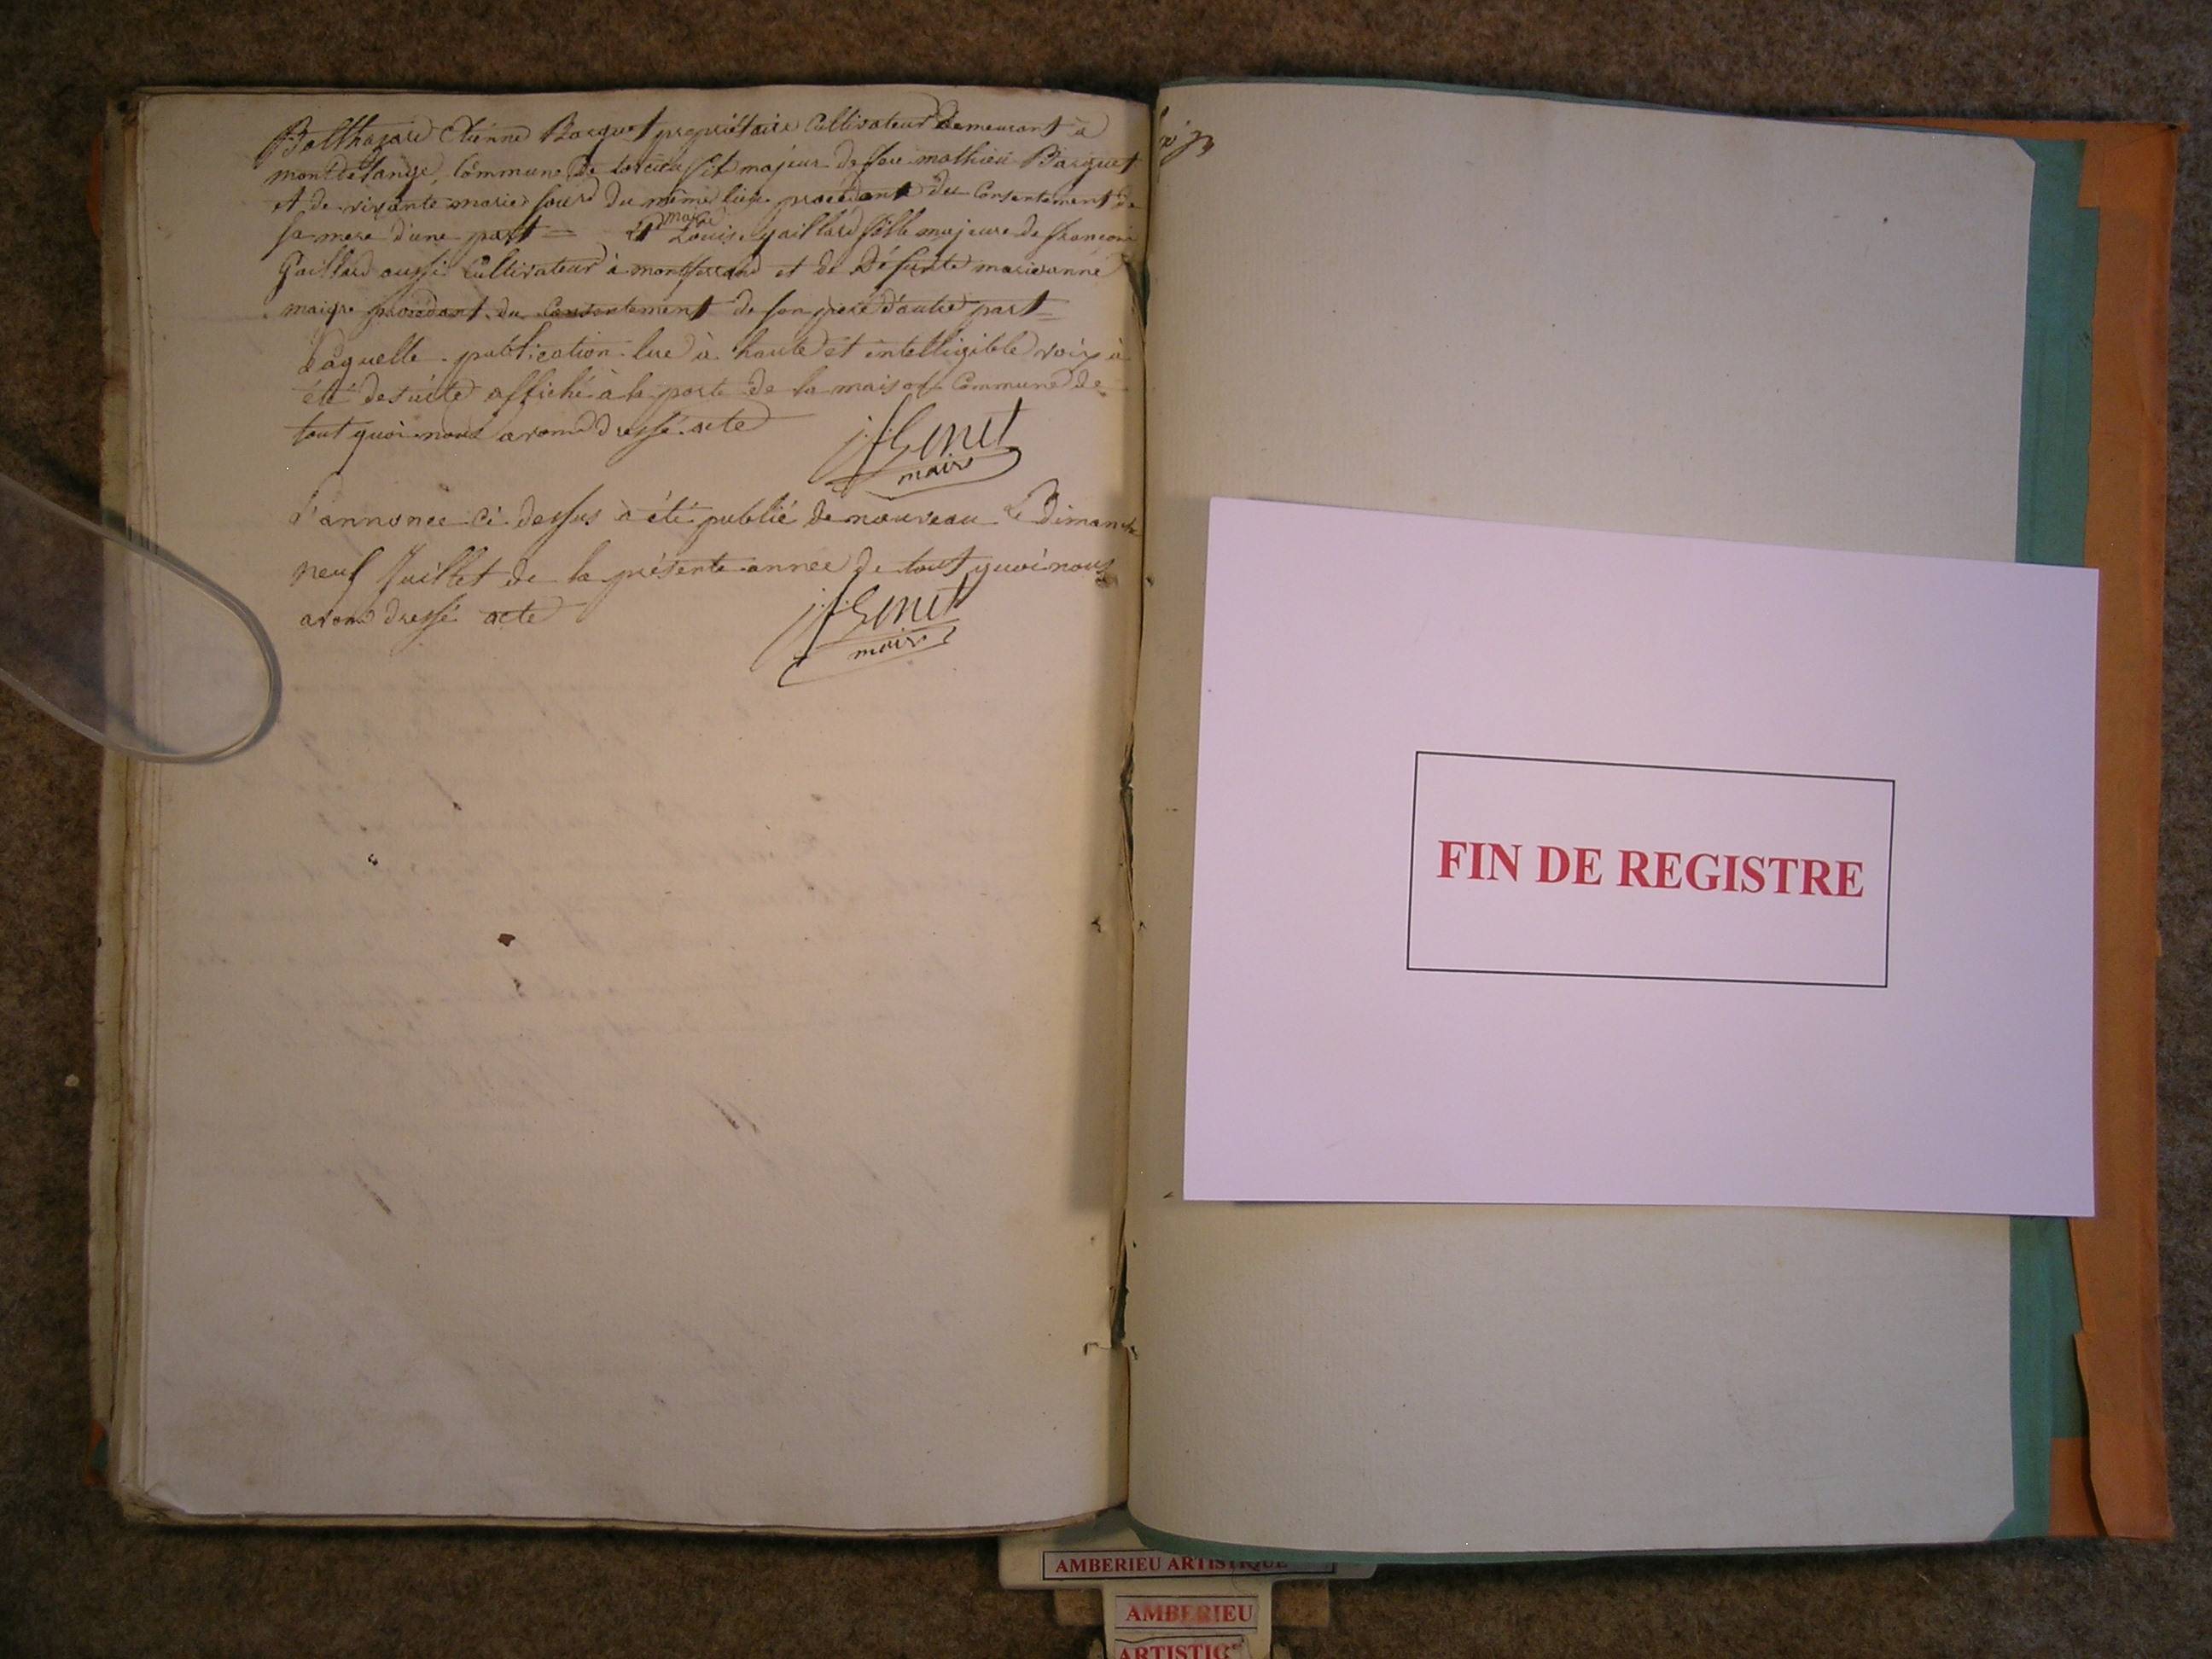 Balthazard Etienne Barquet propriétaire Cultivateur demeurant à
montdelange, Commune De torcieu fil majeur de feu mathieu Barquet
et de vivante marie sourd du même lieu procédant du Consentement de
sa mere d'une part = Et marie Louise gaillard fille majeure de francois
Gaillard aussi Cultivateur à montferrand et de Défunte marieanne
maigre procédant du Consentement de son pere d'autre part =
Laquelle publication lue à haute et intelligible voix à
été desuite affiché à la porte de la maison Commune de
tout quoi nous avons dressé acte
maire
L'annonce Ci dessus à été publié de nouveau Le Dimanche
neuf Juillet de la présente année de tout quoi nous
avons dressé acte
maire
FIN DE REGISTRE
AMBERIEU ARTISTIQUE
AMBERIEU
ARTISTIQ